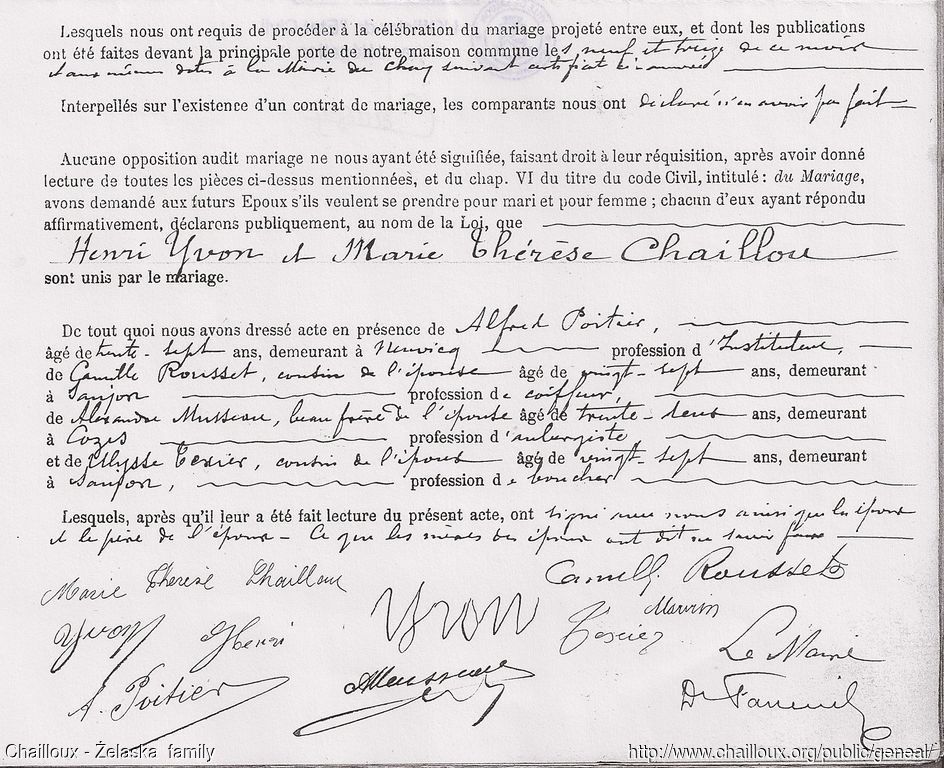 Lesquels nous ont requis de procéder à la célébration du mariage projeté entre eux, et dont les publications
ont été faites devant la principale porte de notre maison commune les neuf et treize de ce mois
et aux mêmes dates à la Mairie du Chay suivant certificat ci-annexé
Interpellés sur l'existence d'un contrat de mariage, les comparants nous ont déclaré n'en avoir pas fait
Aucune opposition audit mariage ne nous ayant été signifiée, faisant droit à leur réquisition, après avoir donné
lecture de toutes les pièces ci-dessus mentionnées, et du chap. VI du titre du code Civil, intitulé : du Mariage,
avons demandé aux futurs Epoux s'ils veulent se prendre pour mari et pour femme ; chacun d'eux ayant répondu
affirmativement, déclarons publiquement, au nom de la Loi, que
Henri Yvon et Marie Thérèse Chaillou
sont unis par le mariage.
De tout quoi nous avons dressé acte en présence de Alfred Poitier,
âgé de trente-sept ans, demeurant à Neuvicq profession d'Instituteur,
de Camille Rousset, cousin de l'épouse âgé de vingt-sept ans, demeurant
à Saujon profession de coiffeur,
de Alexandre Musseau, beau frère de l'épouse âgé de trente- ans, demeurant
à Cozes profession d'aubergiste,
et de Ulysse Texier, cousin de l'époux âgé de vingt-sept ans, demeurant
à Saujon, profession de boucher
Lesquels, après qu'il leur a été fait lecture du présent acte, ont signé avec nous ainsi que les époux
et le père de l'époux - Ce que les mères des époux ont dit ne savoir faire
Marie Thérèse Chaillou Camille Rousset
Yvon Henri Yvon Texier
A. Poitier AMusseau Le Maire
Dr
Chailloux - Żelaska family http://www.chailloux.org/public/geneal/